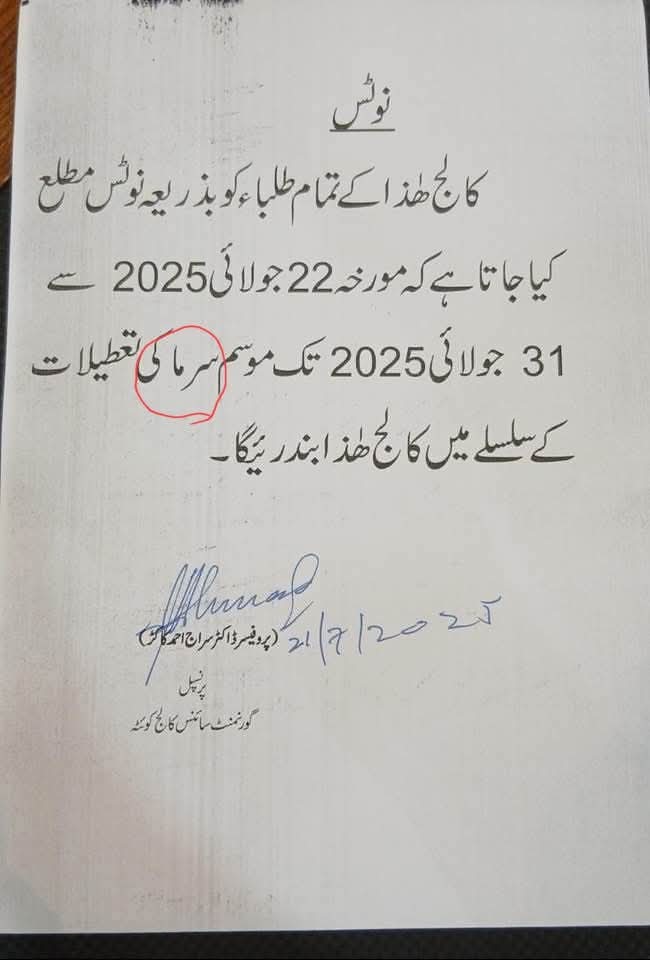 نوٹس
کالج ھٰذا کے تمام طلباء کو بذریعہ نوٹس مطلع
کیا جاتا ہے کہ مورخہ 22 جولائی 2025 سے
31 جولائی 2025 تک موسم سرما کی تعطیلات
کے سلسلے میں کالج ھٰذا بند رئیگا۔
21/7/2025
(پروفیسر ڈاکٹر سراج احمد کاکڑ)
پرنسپل
گورنمنٹ سائنس کالج کوئٹہ